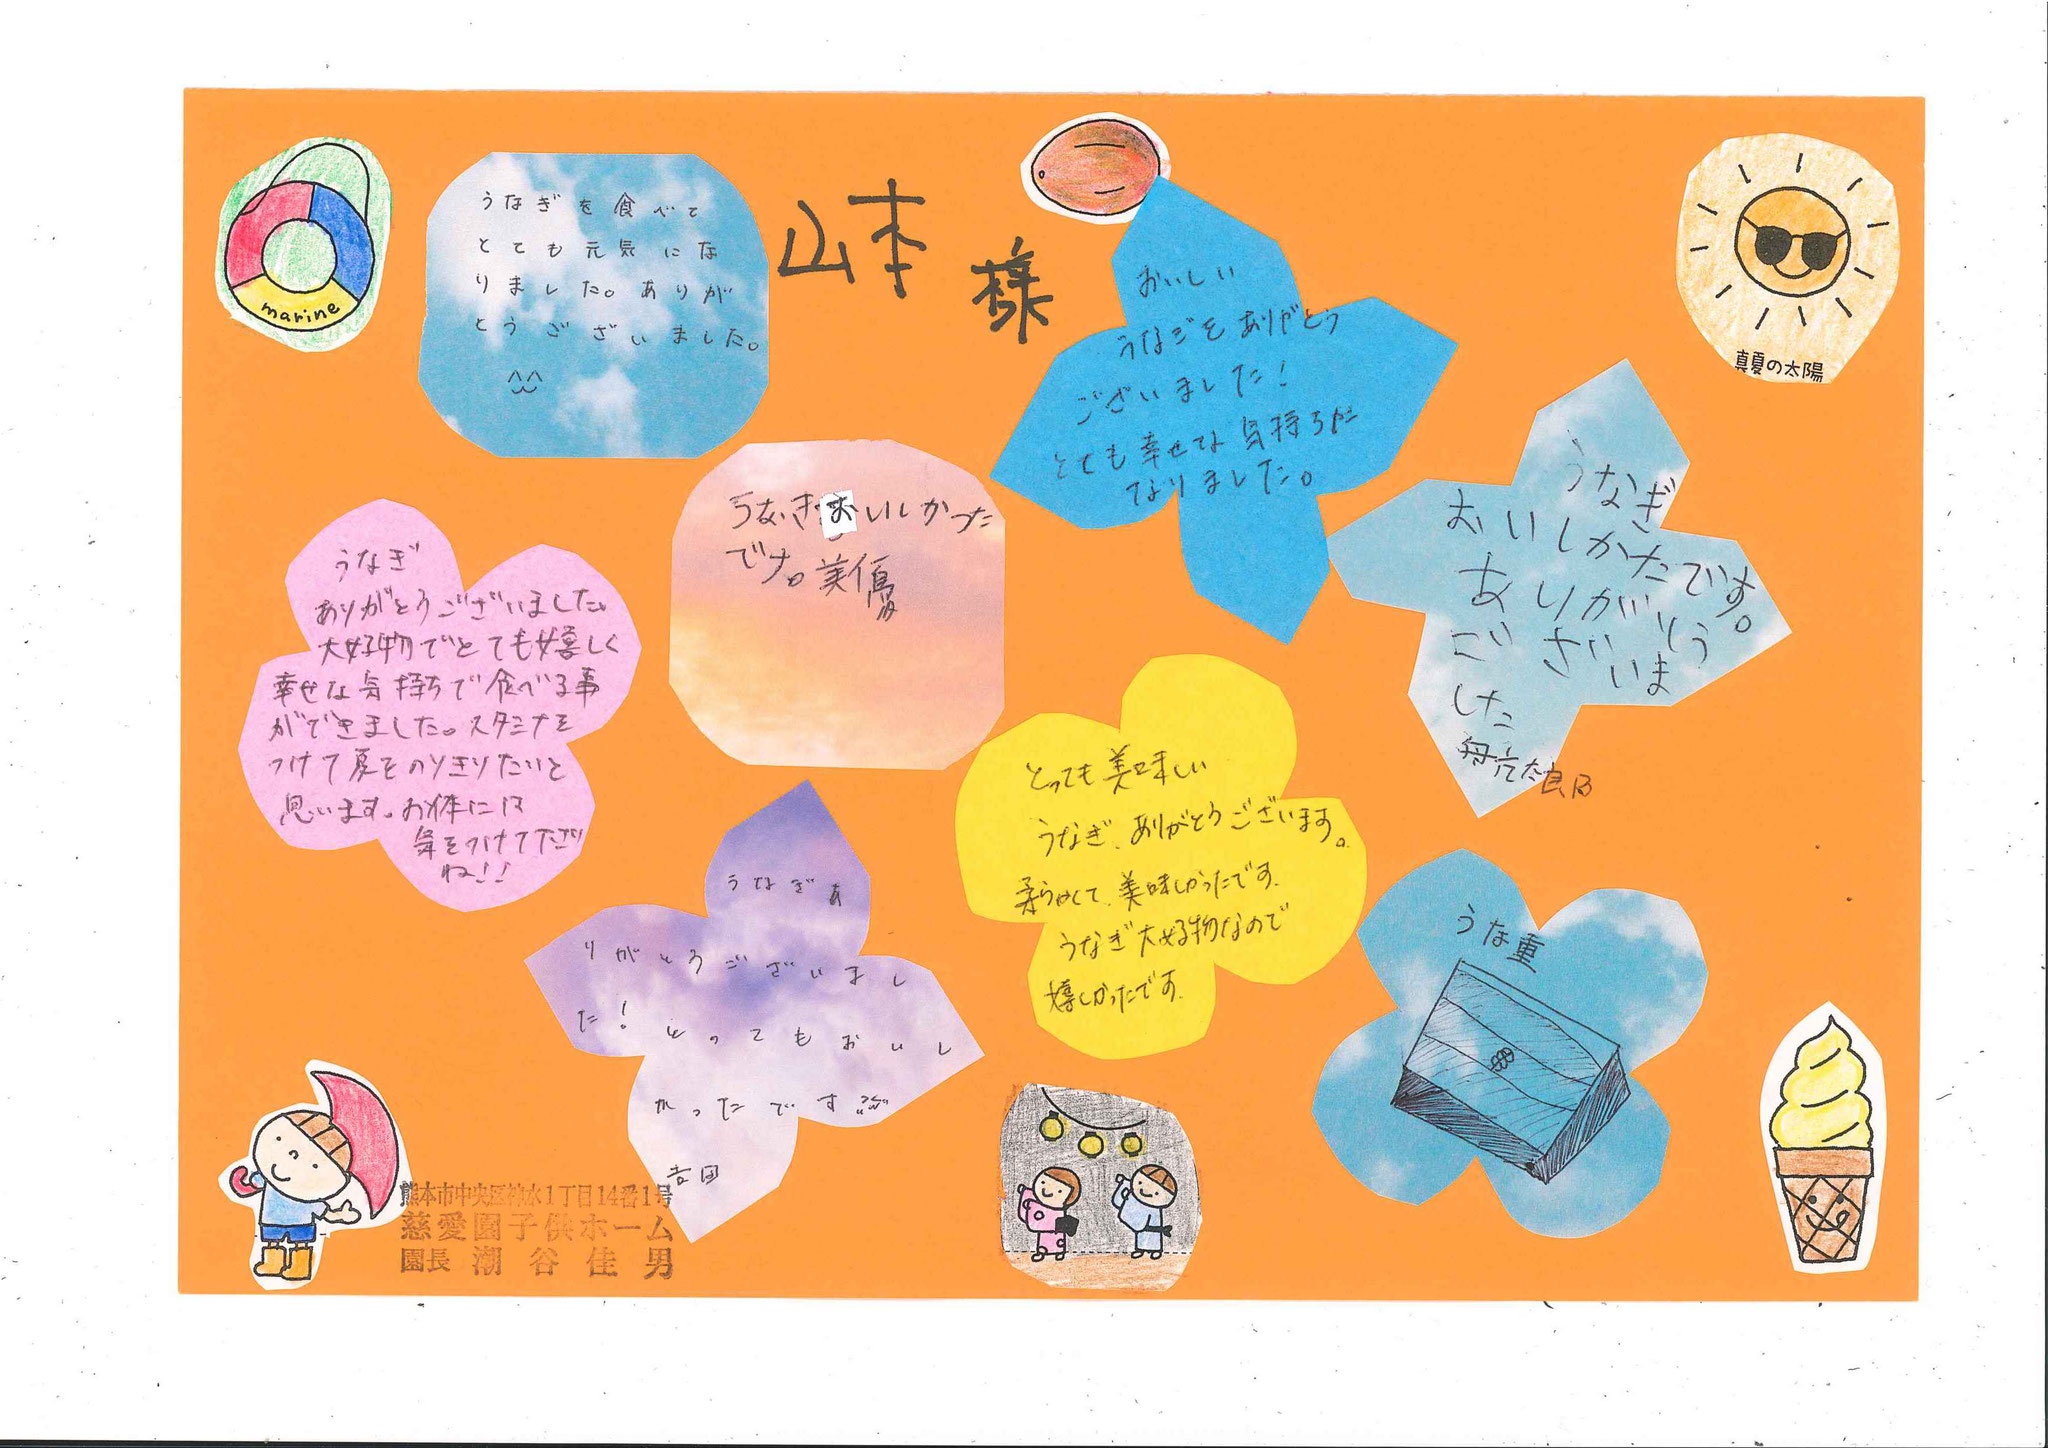 山本
様
marine
うなぎを食べて
とても元気にな
りました。ありが
とうございました。
おいしい
うなぎをありがとう
ございました!
とても幸せな気持ちに
なりました。
真夏の太陽
うなぎおいしかった
です。美優
うなぎ
おいしかたです。
ありがとう
ございま
した
うなぎ
ありがとうございました。
大好物でとても嬉しく
幸せな気持ちで食べる事
ができました。スタミナを
つけて夏をのりきりたいと
思います。お体には
気をつけて下さい
ね!!
とっても美味しい
うなぎ、ありがとうございます。
柔らかくて、美味しかったです。
うなぎ大好物なので
嬉しかったです。
うなぎあ
りがとうございまし
た! とってもおいし
かったです
吉田
うな重
熊本市中央区神水1丁目14番1号
慈愛園子供ホーム
園長 潮谷佳男